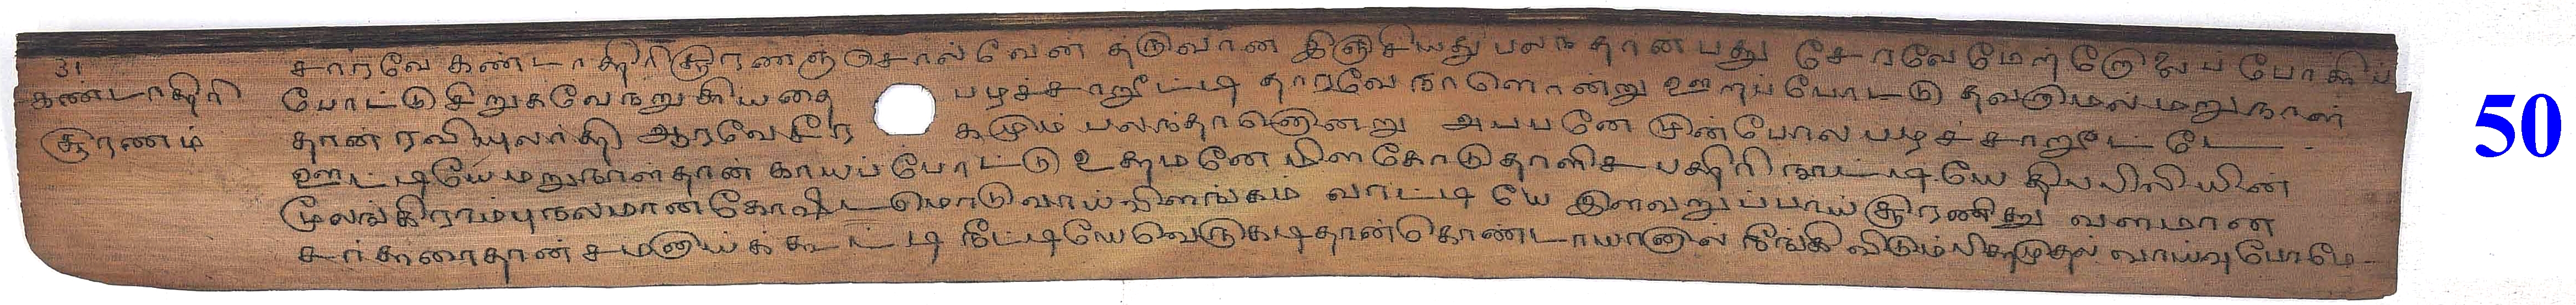 31
கண்டாத்திரி
சூரணம்
சார்வே கண்டாத்திரிசூரணஞ் சொல்வேன் தருவான இஞ்சியது பலந்தான்பது சேரவே மேற்றோலைப் போக்கிப்
போட்டு சிறுகவே நறுகியதை பழச்சாறூட்டி தாரவே நாளொன்று ஊறப்போட்டு மறுநாள்
தான் ரவியுலர்த்தி ஆரவே சீரகமும் பலந்தானொன்று அப்பனே முன்போல பழச்சாறூட்டே
ஊட்டியே மறுநாள்தான் காயப்போட்டு உத்தமனே மிளகோடு தாளிசபத்திரி நாட்டியே திப்பிலியின்
மூலங்கிராம்பு நலமான கோஷ்டமொடு வாய்விளங்கம் வாட்டியே இளவறுப்பாய் சூரணித்து வளமான
சர்க்கரைதான் சமனாய்க் கூட்டி நீட்டியே வெருகடிதான் கொண்டாயானால் நீங்கிவிடும் வாய்வு போமே
50